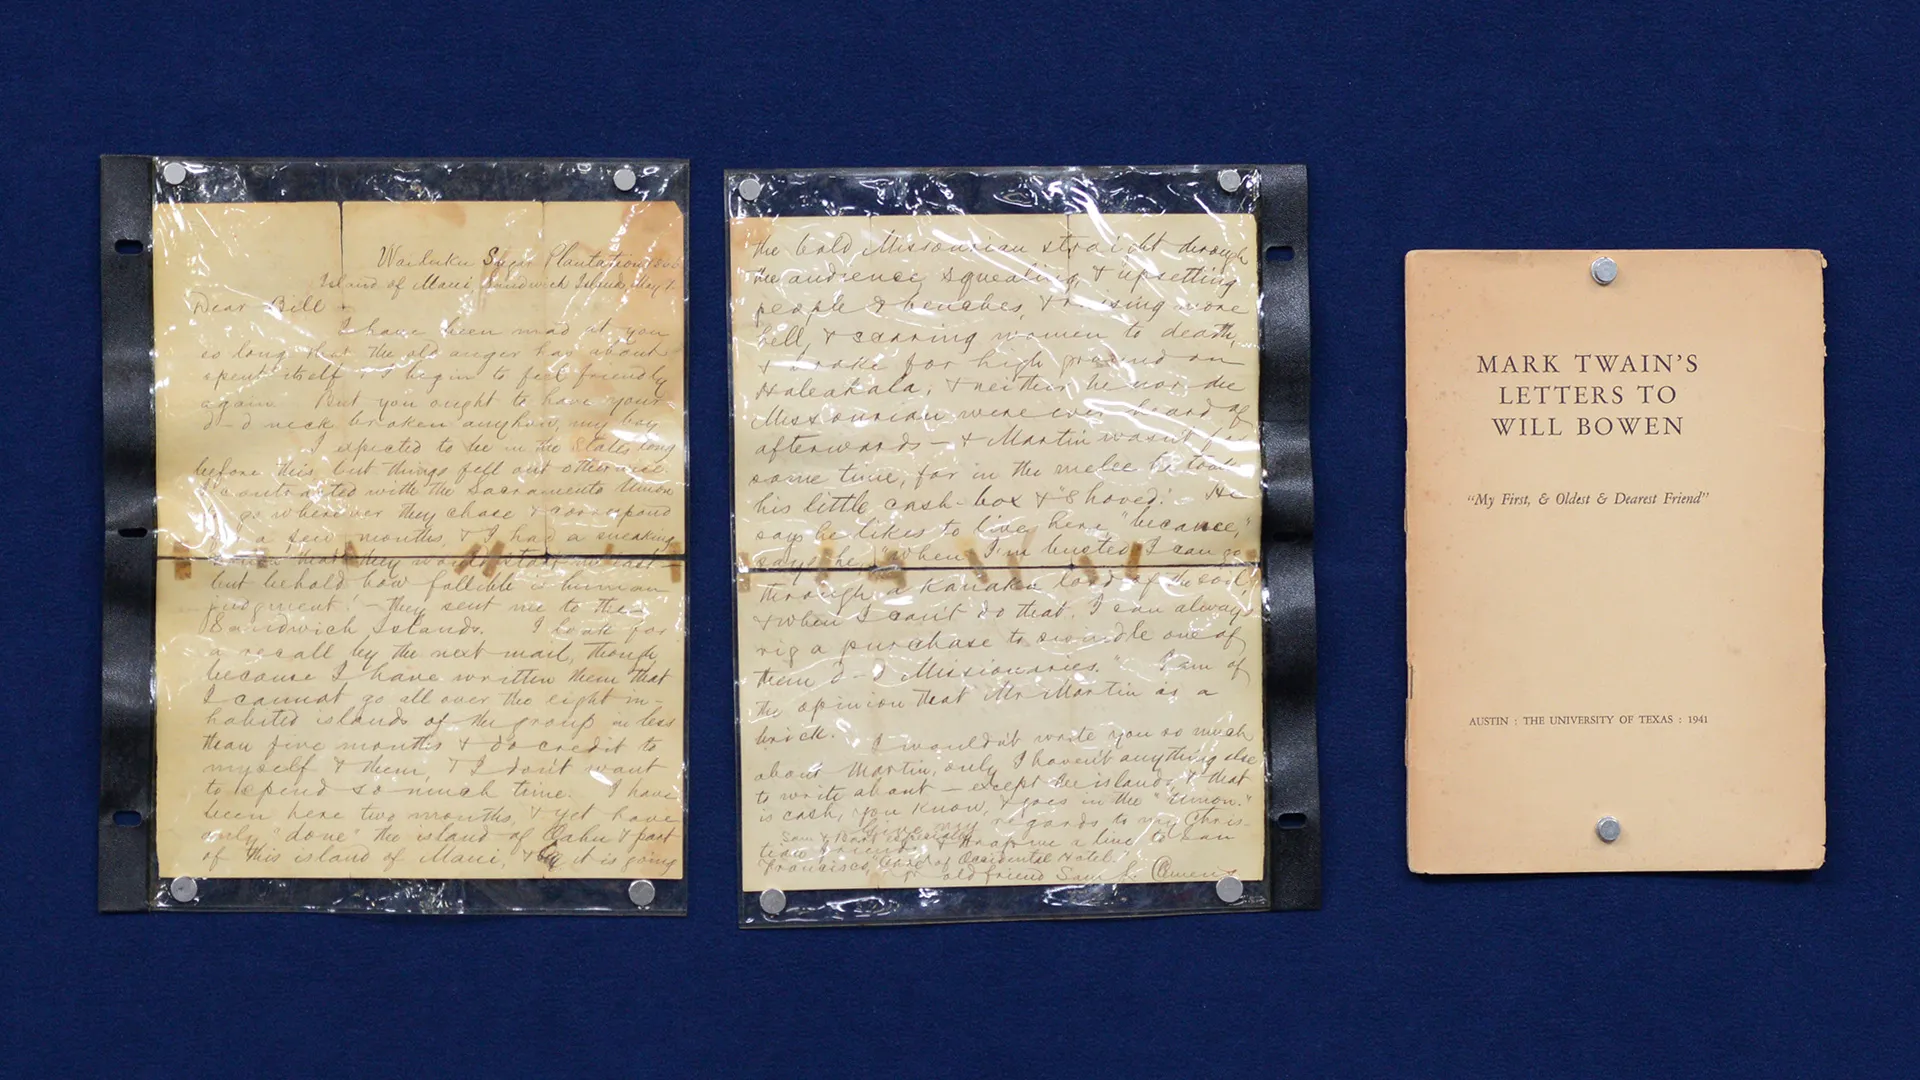 Wailuku Sugar Plantation
Island of Maui, Sandwich Islands, May 7.
Dear Bill —
I have been mad at you
so long that the old anger has about
spent itself & I begin to feel friendly
again. But you ought to have your
d—d neck broken anyhow, my boy
I expected to be in the States long
before this, but things fell out otherwise.
I contracted with the Sacramento Union
to go wherever they chose & correspond
for a few months, & I had a sneaking
that they would start me east—
but behold how fallible is human
judgment! — they sent me to the
Sandwich Islands. I look for
a recall by the next mail, though
because I have written them that
I cannot go all over the eight in-
habited islands of the group in less
than five months & do credit to
myself & them, & I don't want
to spend so much time. I have
been here two months, & yet have
only "done" the island of Oahu & part
of this island of Maui, & it is going
the bold Missourian straight through
the audience, squealing, & upsetting
people & benches, & raising more
hell, & scaring women to death,
& broke for high ground on
Haleakala, & neither he nor the
Missourian were ever heard of
afterwards — & Martin wasn't for
some time, for in the melee he took
his little cash-box & "shoved." He
says he likes to live here, "because,"
says he, "when I'm busted I can go
through a Kanaka lord of the soil,
& when I can't do that, I can always
rig a purchase to swindle one of
them d—d Missionaries." I am of
the opinion that Mr Martin is a
brick.
I wouldn't write you so much
about Martin, only I haven't anything else
to write about — except the islands, & that
is cash, you know, & goes in the "Union."
Give my regards to my Chris-
tian friends, & drop me a line to San
Sam & Bart especially
Francisco, "care of Occidental Hotel."
Yr old friend Sam L. Clemens
MARK TWAIN'S
LETTERS TO
WILL BOWEN
"My First, & Oldest & Dearest Friend"
AUSTIN : THE UNIVERSITY OF TEXAS : 1941